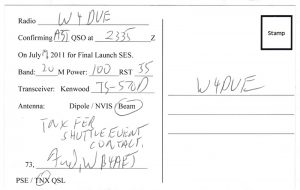 Radio W4DUE
Confirming ASI QSO at 2335 Z
On July 2011 for Final Launch SES.
Band: 20 M Power: 100 RST 55
Transceiver: Kenwood TS-570D
Antenna: Dipole / NVIS / Beam
TNX FER
SHUTTLE EVENT
CONTACT.
73,
PSE / TNX QSL
Stamp
W4DUE